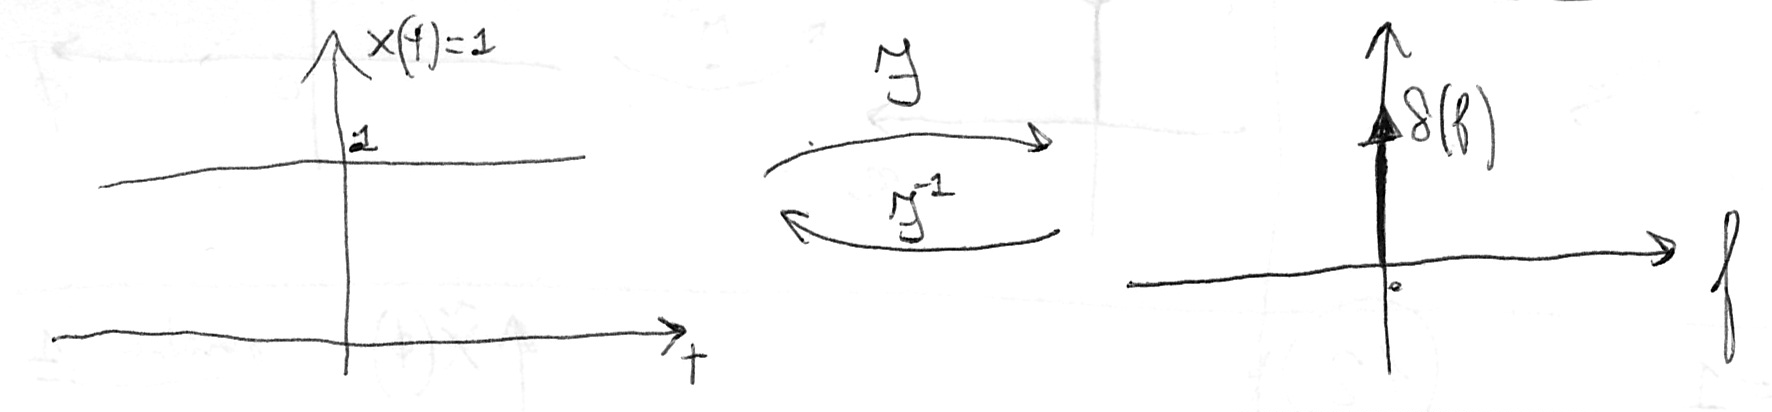 x(t)=1
1
t
ℱ
ℱ⁻¹
δ(f)
0
f